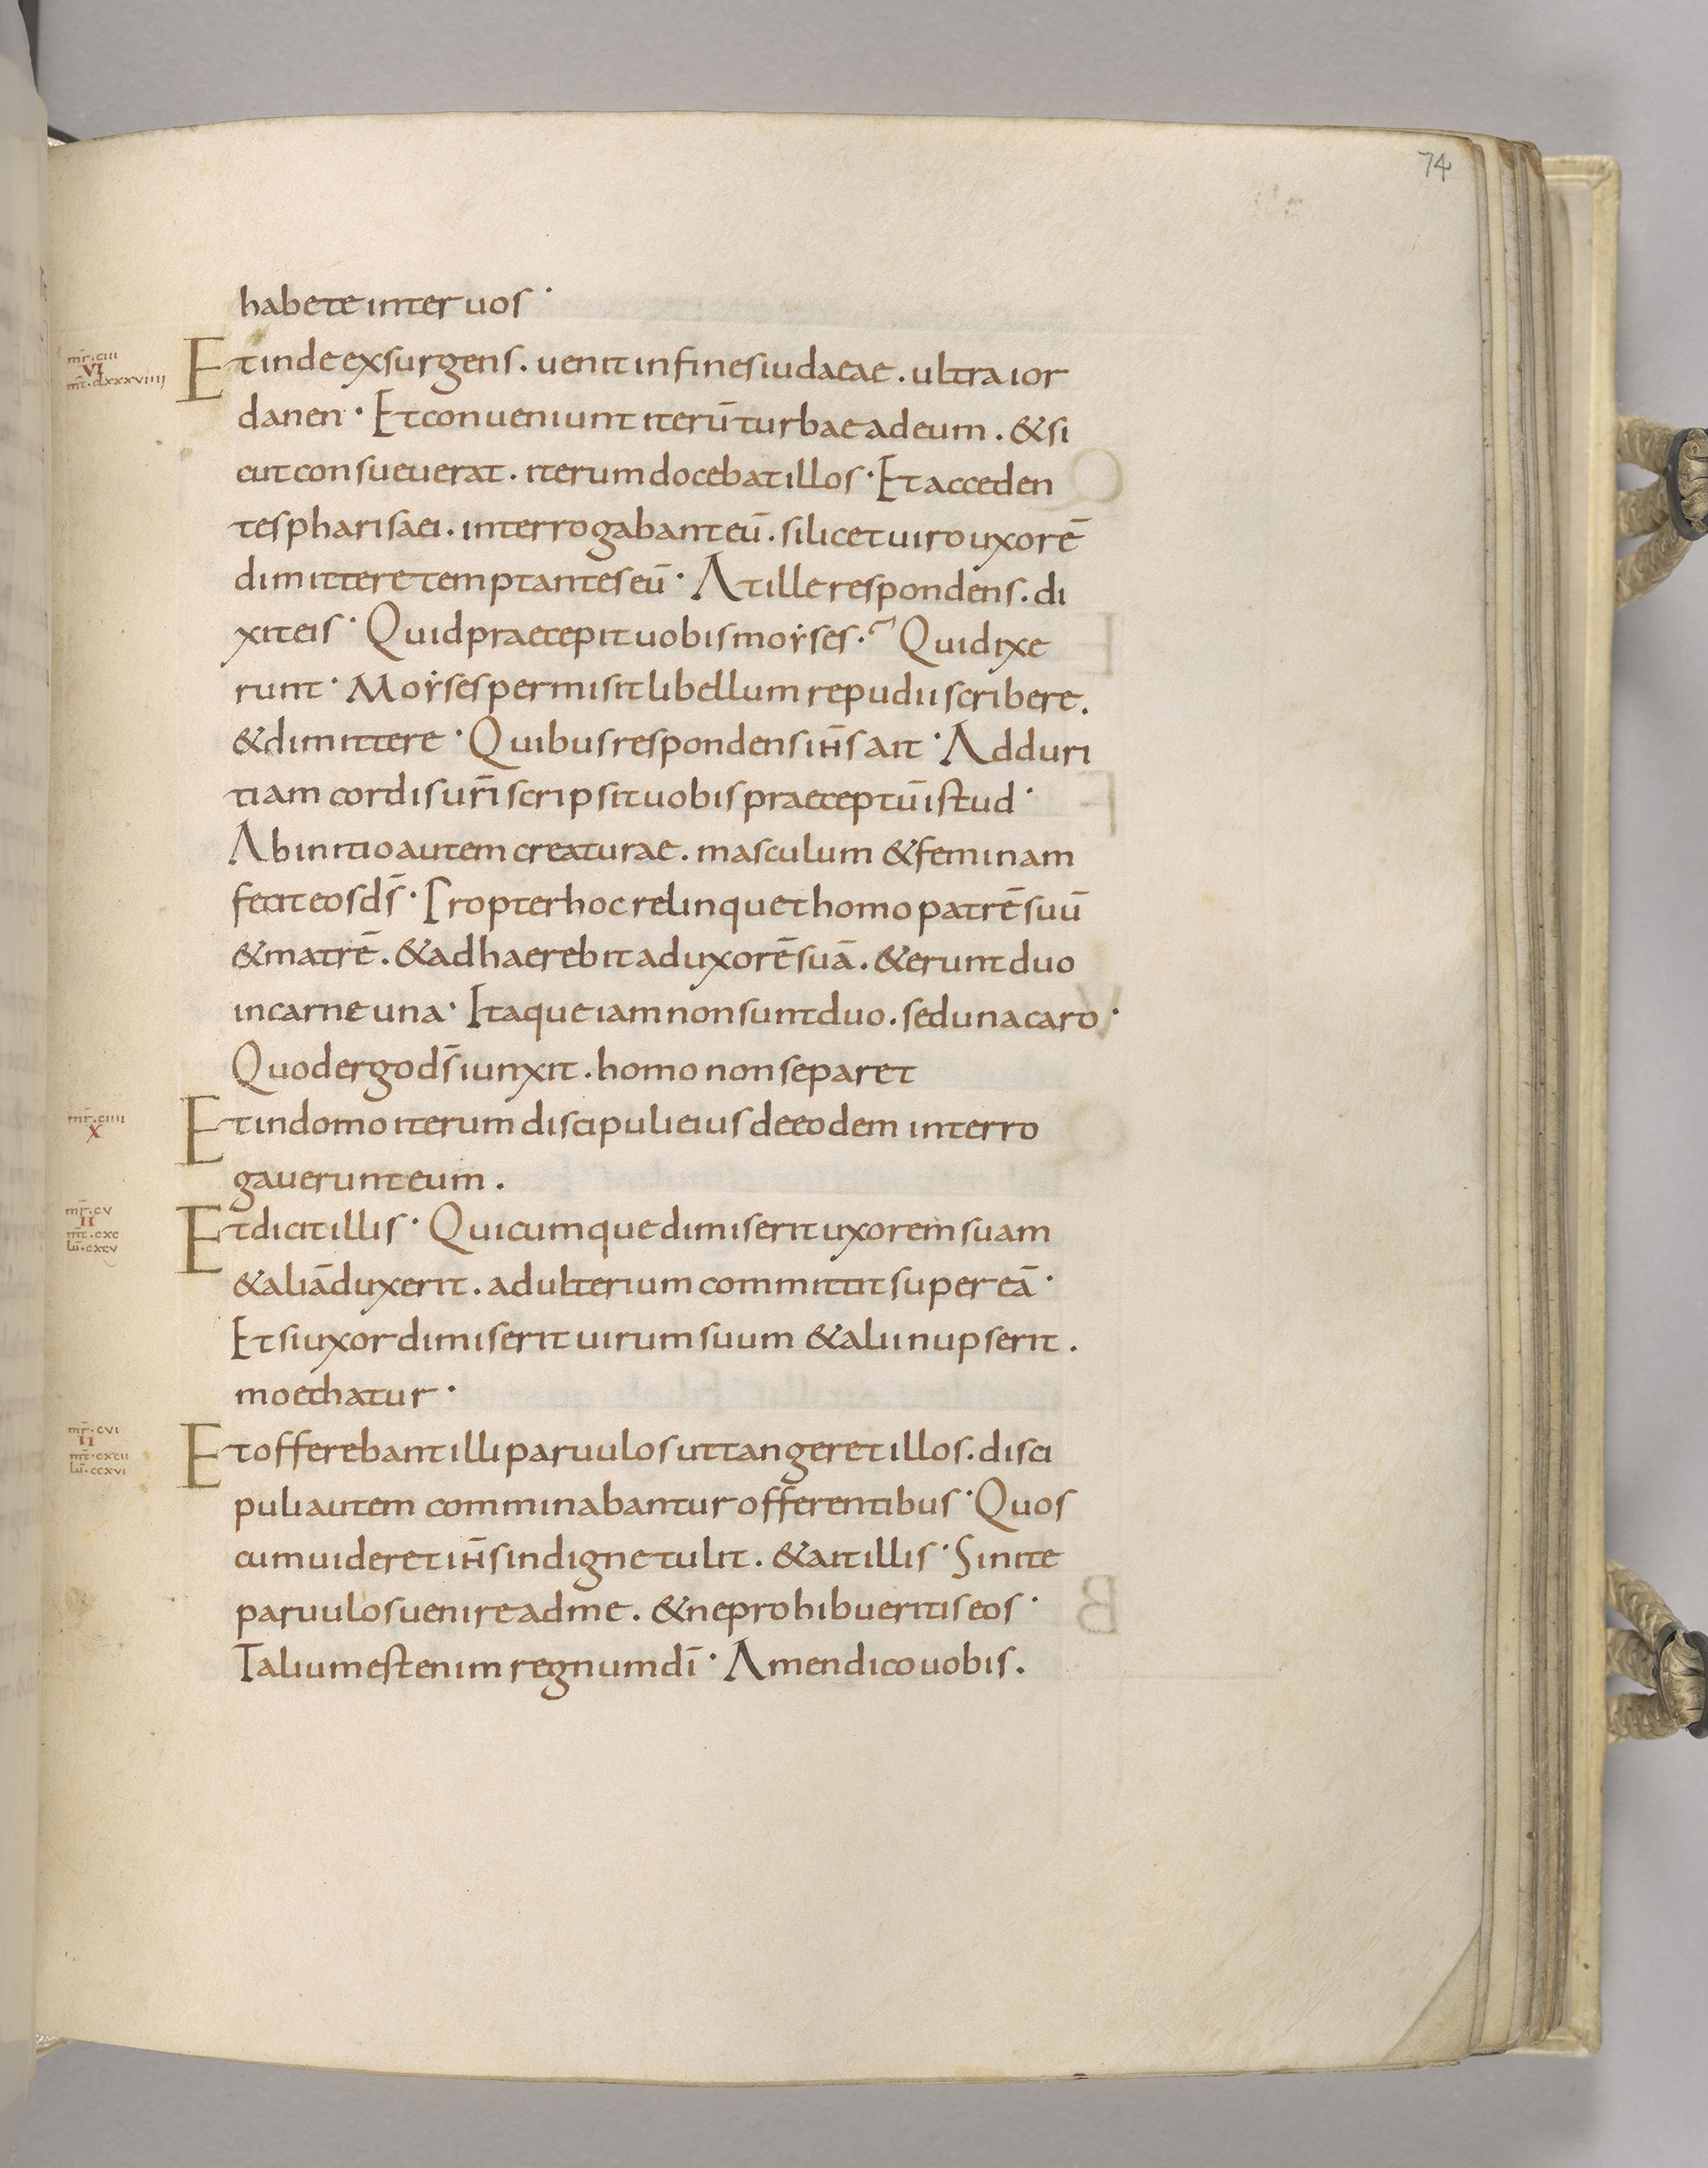 74
habete inter uos ·
mr̄. ciii
VI
mt̄. clxxxviiii
Et inde exsurgens . uenit in fines iudaeae . ultra ior
danen · Et conueniunt iterū turbae ad eum . & si
cut consueuerat . iterum docebat illos · Et acceden
tes pharisaei . interrogabant eū . si licet uiro uxorē
dimittere temptantes eū · At ille respondens . di
xit eis · Quid praecepit uobis moẏses .? Qui dixe
runt · Moẏses permisit libellum repudii scribere .
& dimittere · Quibus respondens ih̄s ait · Ad duri
tiam cordis ur̄i scripsit uobis praeceptū istud ·
Ab initio autem creaturae . masculum & feminam
fecit eos ds̄ · Propter hoc relinquet homo patrē suū
& matrē . & adhaerebit ad uxorē suā . & erunt duo
in carne una · Itaque iam non sunt duo . sed una caro ·
Quod ergo ds̄ iunxit . homo non separet
mr̄. ciiii
X
Et in domo iterum discipuli eius de eodem interro
gauerunt eum .
mr̄. cv
II
mt̄. cxc
lū. cxcv
Et dicit illis · Quicumque dimiserit uxorem suam
& aliā duxerit . adulterium committit super eā ·
Et si uxor dimiserit uirum suum & alii nupserit .
moechatur ·
mr̄. cvi
II
mt̄. cxcii
lū. ccxvi
Et offerebant illi paruulos ut tangeret illos . disci
puli autem comminabantur offerentibus · Quos
cum uideret ih̄s indigne tulit . & ait illis · Sinite
paruulos uenire ad me . & ne prohibueritis eos ·
Talium est enim regnum dī · Amen dico uobis .